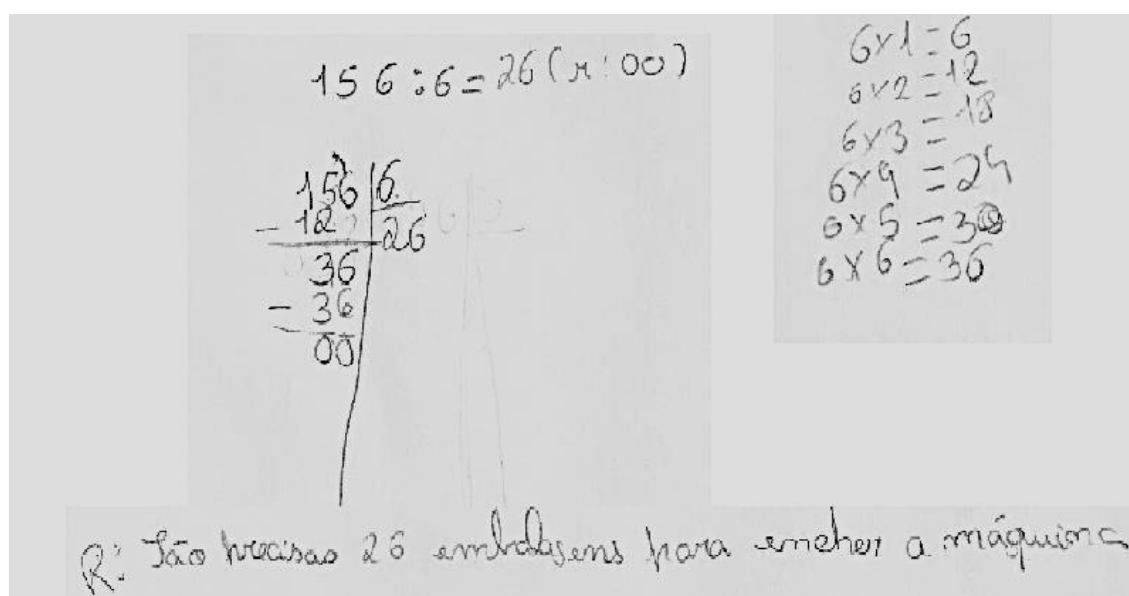 156:6=26 (r:00)
156 6
- 12 26
36
- 36
00
6x1=6
6x2=12
6x3=18
6x4=24
6x5=30
6x6=36
R: São precisas 26 embalagens para encher a máquina